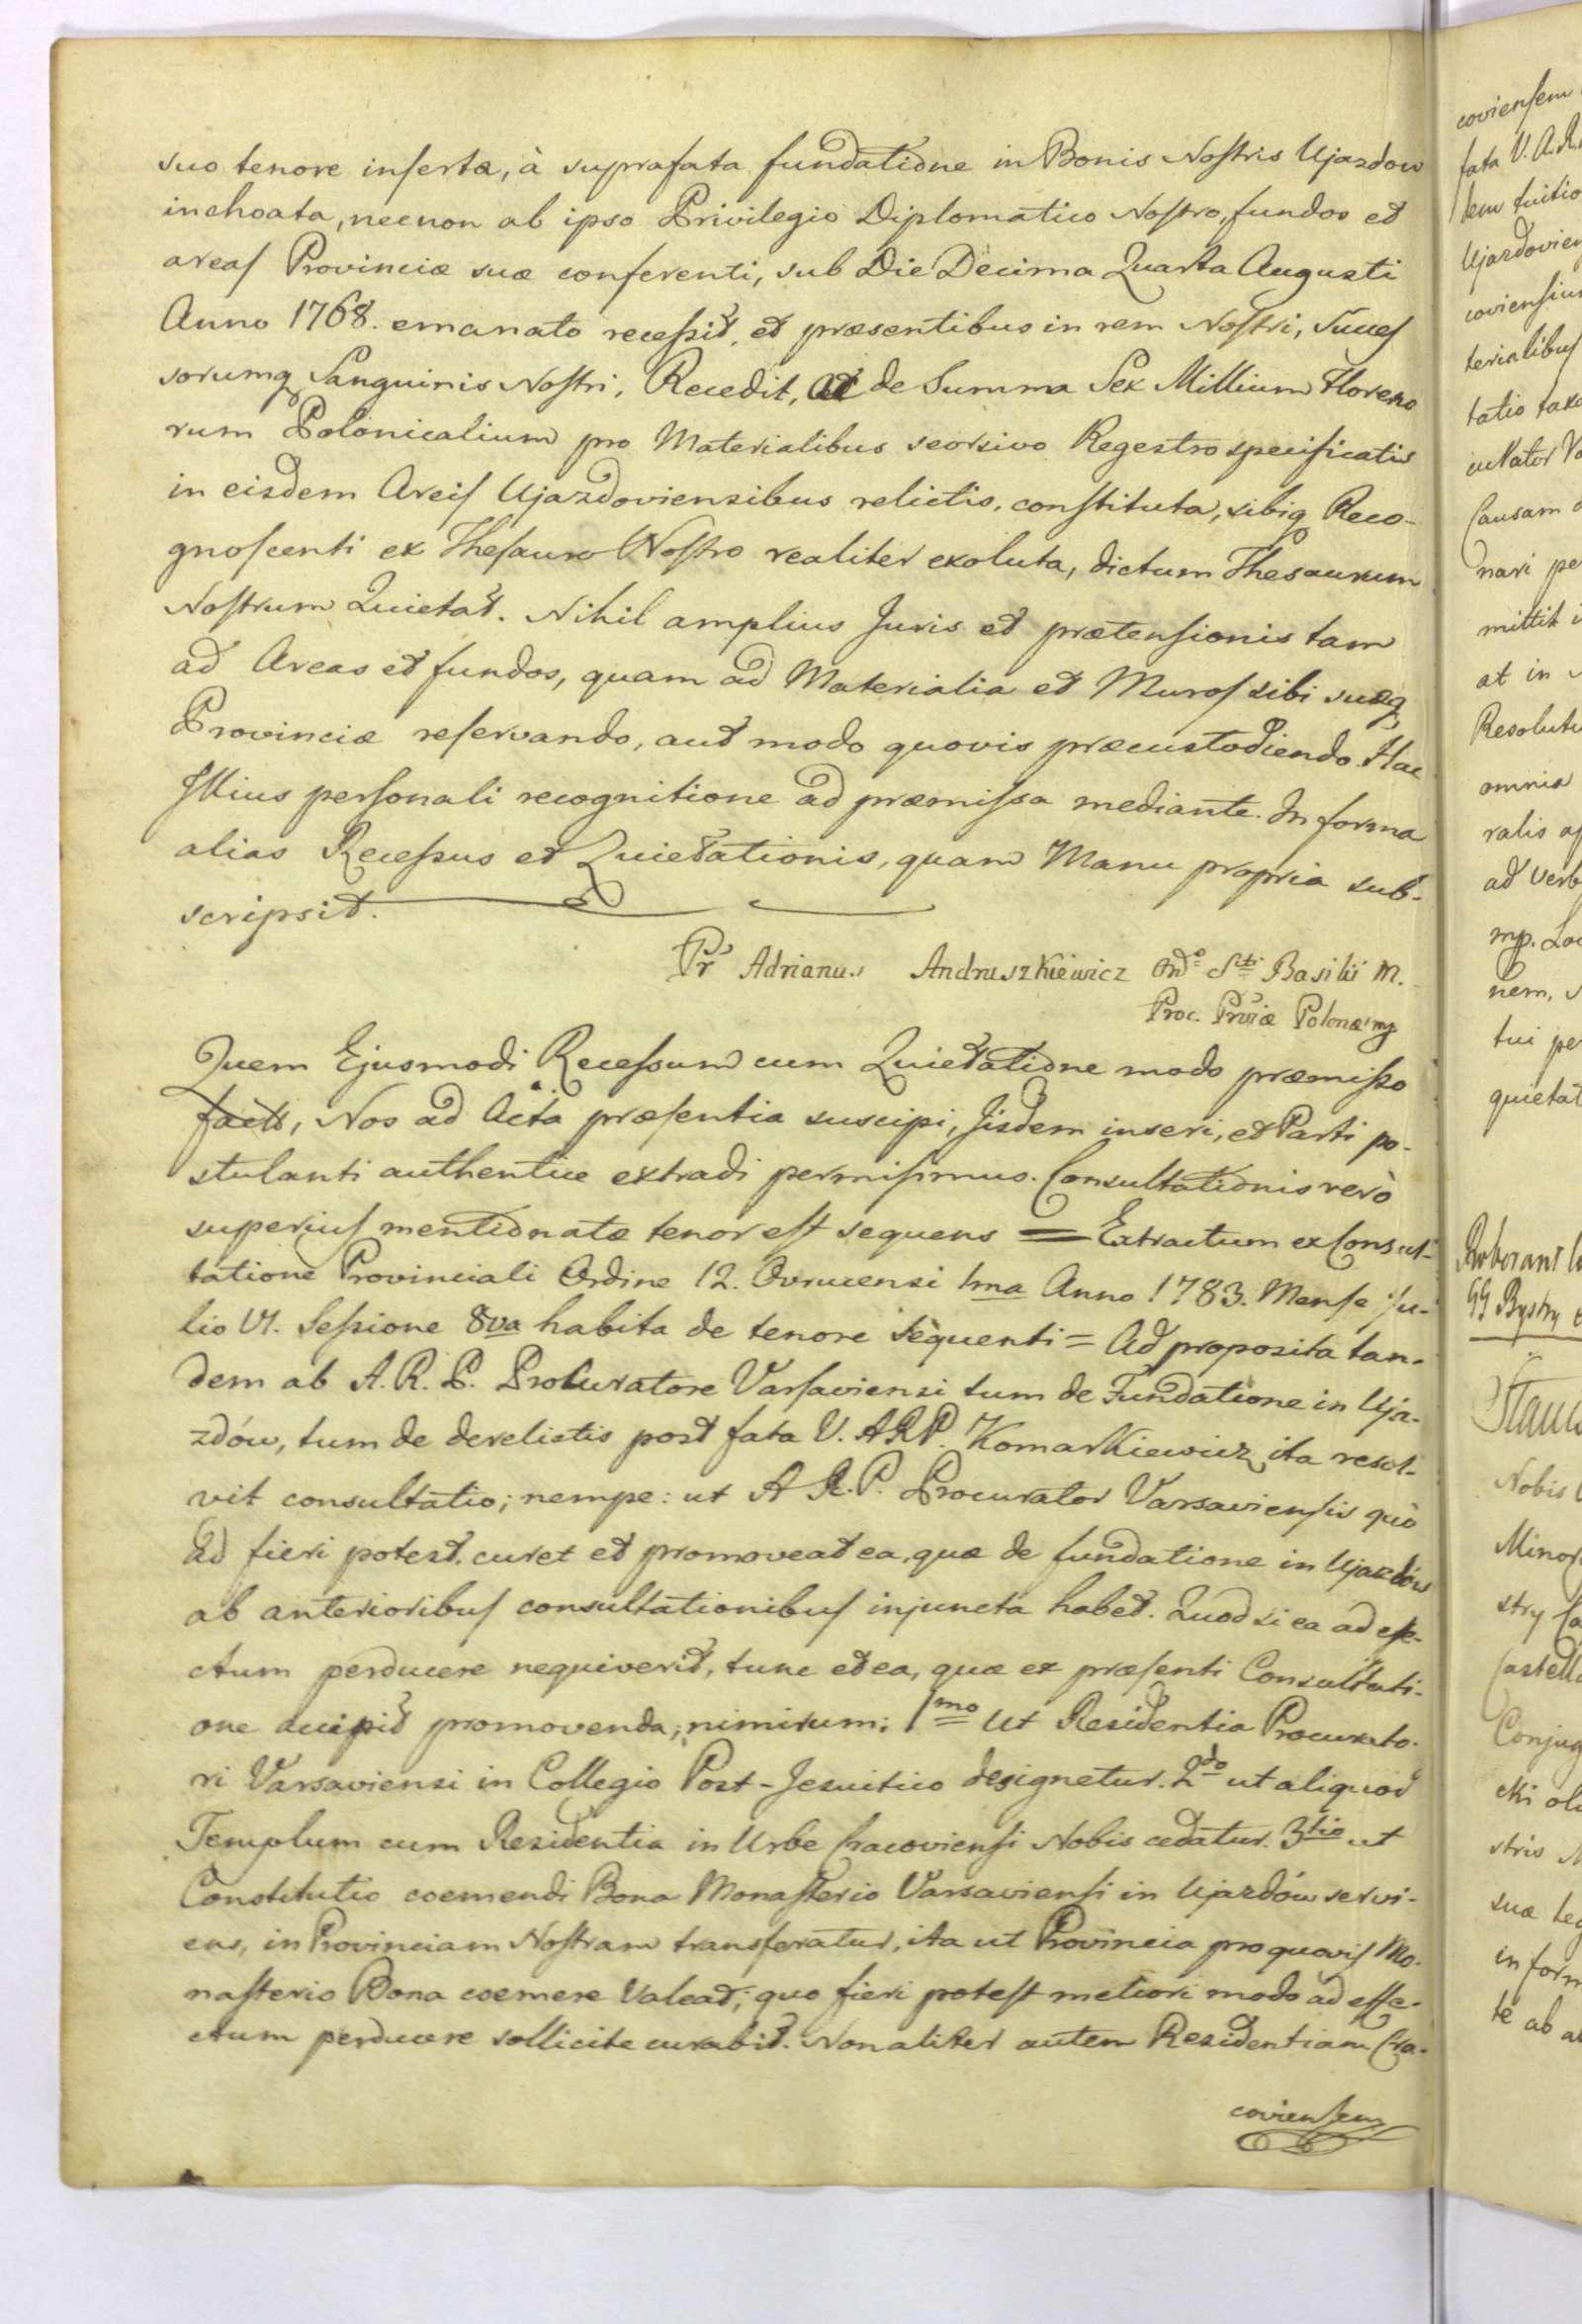 suo tenore insertæ, à suprafata fundatione in Bonis Nostris Ujazdow
inchoata, necnon ab ipso Privilegio Diplomatico Nostro, fundos et
areas Provinciæ suæ conferenti, sub Die Decima Quarta Augusti
Anno 1768. emanato recessit, et præsentibus in rem Nostri, Succes
sorumq Sanguinis Nostri, Recedit, Ac de Summa Sex Millium Floreno
rum Polonicalium pro Materialibus seorsivo Regestro specificatis
in eisdem Areis Ujazdoviensibus relictis, constituta, sibiq Reco-
gnoscenti ex Thesauro Nostro realiter exoluta, dictum Thesaurum
Nostrum Quietat. Nihil amplius Juris et prætensionis tam
ad Areas et fundos, quam ad Materialia et Muros sibi suæq
Provinciæ reservando, aut modo quovis præcustodiendo. Hac
Illius personali recognitione ad præmissa mediante. In forma
alias Recessus et Quietationis, quam Manu propria sub-
scripsit.
Pr Adrianus Andruszkiewicz Ord= Sti Basilii M.
Proc. Prviæ Polonæ mp
Quem Ejusmodi Recessum cum Quietatione modo præmisso
facto, Nos ad Acta præsentia suscipi, Jisdem inseri, et Parti po-
stulanti authentice extradi permisimus. Consultationis verò
superius mentionatæ tenor est sequens = Extractum ex Consul-
tatione Provinciali Ordine 12. Ovrucensi 1ma Anno 1783. Mense Ju-
lio VI. Sessione 8va habita de tenore sequenti = Ad proposita tan-
dem ab A. R. P. Procuratore Varsaviensi tum de Fundatione in Uja-
zdów, tum de derelictis post fata V. ARP. Komarkiewicz ita resol-
vit consultatio; nempe: ut A R. P. Procurator Varsaviensis quò
ad fieri potest, curet et promoveat ea, quæ de fundatione in Ujazdów
ab anterioribus consultationibus injuncta habet. Quod si ea ad effe-
ctum perducere nequiverit, tunc et ea, quæ ex præsenti Consultati-
one accipit promovenda; nimirum: 1mo Ut Residentia Procurato-
ri Varsaviensi in Collegio Post-Jesuitico designetur. 2do ut aliquod
Templum cum Residentia in Urbe Cracoviensi Nobis cedatur. 3tio ut
Constitutio coemendi Bona Monasterio Varsaviensi in Ujazdów servi-
ens, in Provinciam Nostram transferatur, ita ut Provincia pro quovis Mo-
nasterio Bona coemere valeat; quo fieri potest meliori modo ad effe-
ctum perducere sollicite curabit. Non aliter autem Residentiam Cra-
coviensem
coviensem
fata V. A.R.
tem
Ujazdovien
coviensium
terialibus
tatio
Causam
nari pe
mittit i
at in
Resolut
omnia
ralis
ad verb
mp.
nem,
tui pe
quietat
Roborant
GG Bystry
Nobis
Minor
stry
Castell
Conjug
cki
stris
suæ
in form
te ab